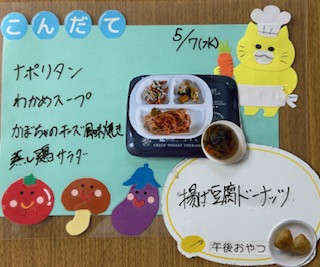 こんだて
5/7(水)
ナポリタン
わかめスープ
かぼちゃのチーズ風味焼き
蒸し鶏サラダ
揚げ豆腐ドーナッツ
午後おやつ